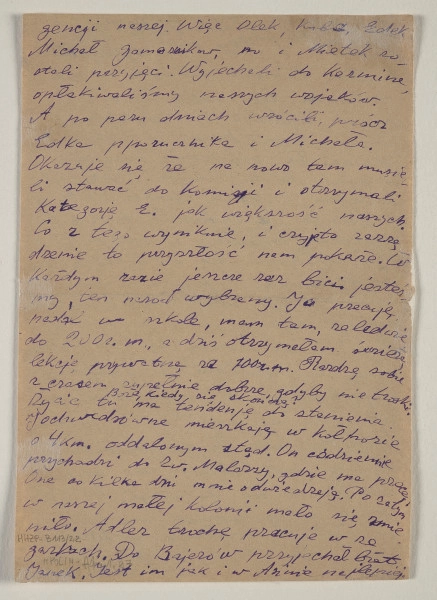 gencji naszej. Więc Olek, Kuba, Lolek
Michał Zamarzików, m i Mietek zo-
stali przyjęci. Wyjechali do Kermine,
opłakiwaliśmy naszych wojaków.
A po paru dniach wrócili prócz
Lolka pporucznika i Michała.
Okazuje się że na nowo tam musie-
li stawać do komisji i otrzymali
Kategorję E. jak większość naszych.
Co z tego wyniknie, i czyje to zarzą
dzenie to przyszłość nam pokaże. W
każdym razie jeszcze raz bici jesteś
my, ten naród wybrany. Ja pracuję
nadal w szkole, mam tam, zaledwie
do 200r. m., a dziś otrzymałem
lekcje prywatną za 100r.m. Radzę sobie
z czasem zupełnie dobrze, gdyby nie troski.
Brak kiedy się skończy?
Życie tu ma tendencję do stanienia.
mieszkają w Kołhozie
o 4 km. oddalonym stąd. On codziennie
przychodzi do Zw. Malarzy, gdzie ma pracę.
One co kilka dni mnie odwiedzają. Po za tym
w naszej małej kolonii mało się zmie-
niło. Adler trochę pracuje w ze
garkach. Do Bajerów przyjechał brat
Janek. Jest im jak i w najlepiej